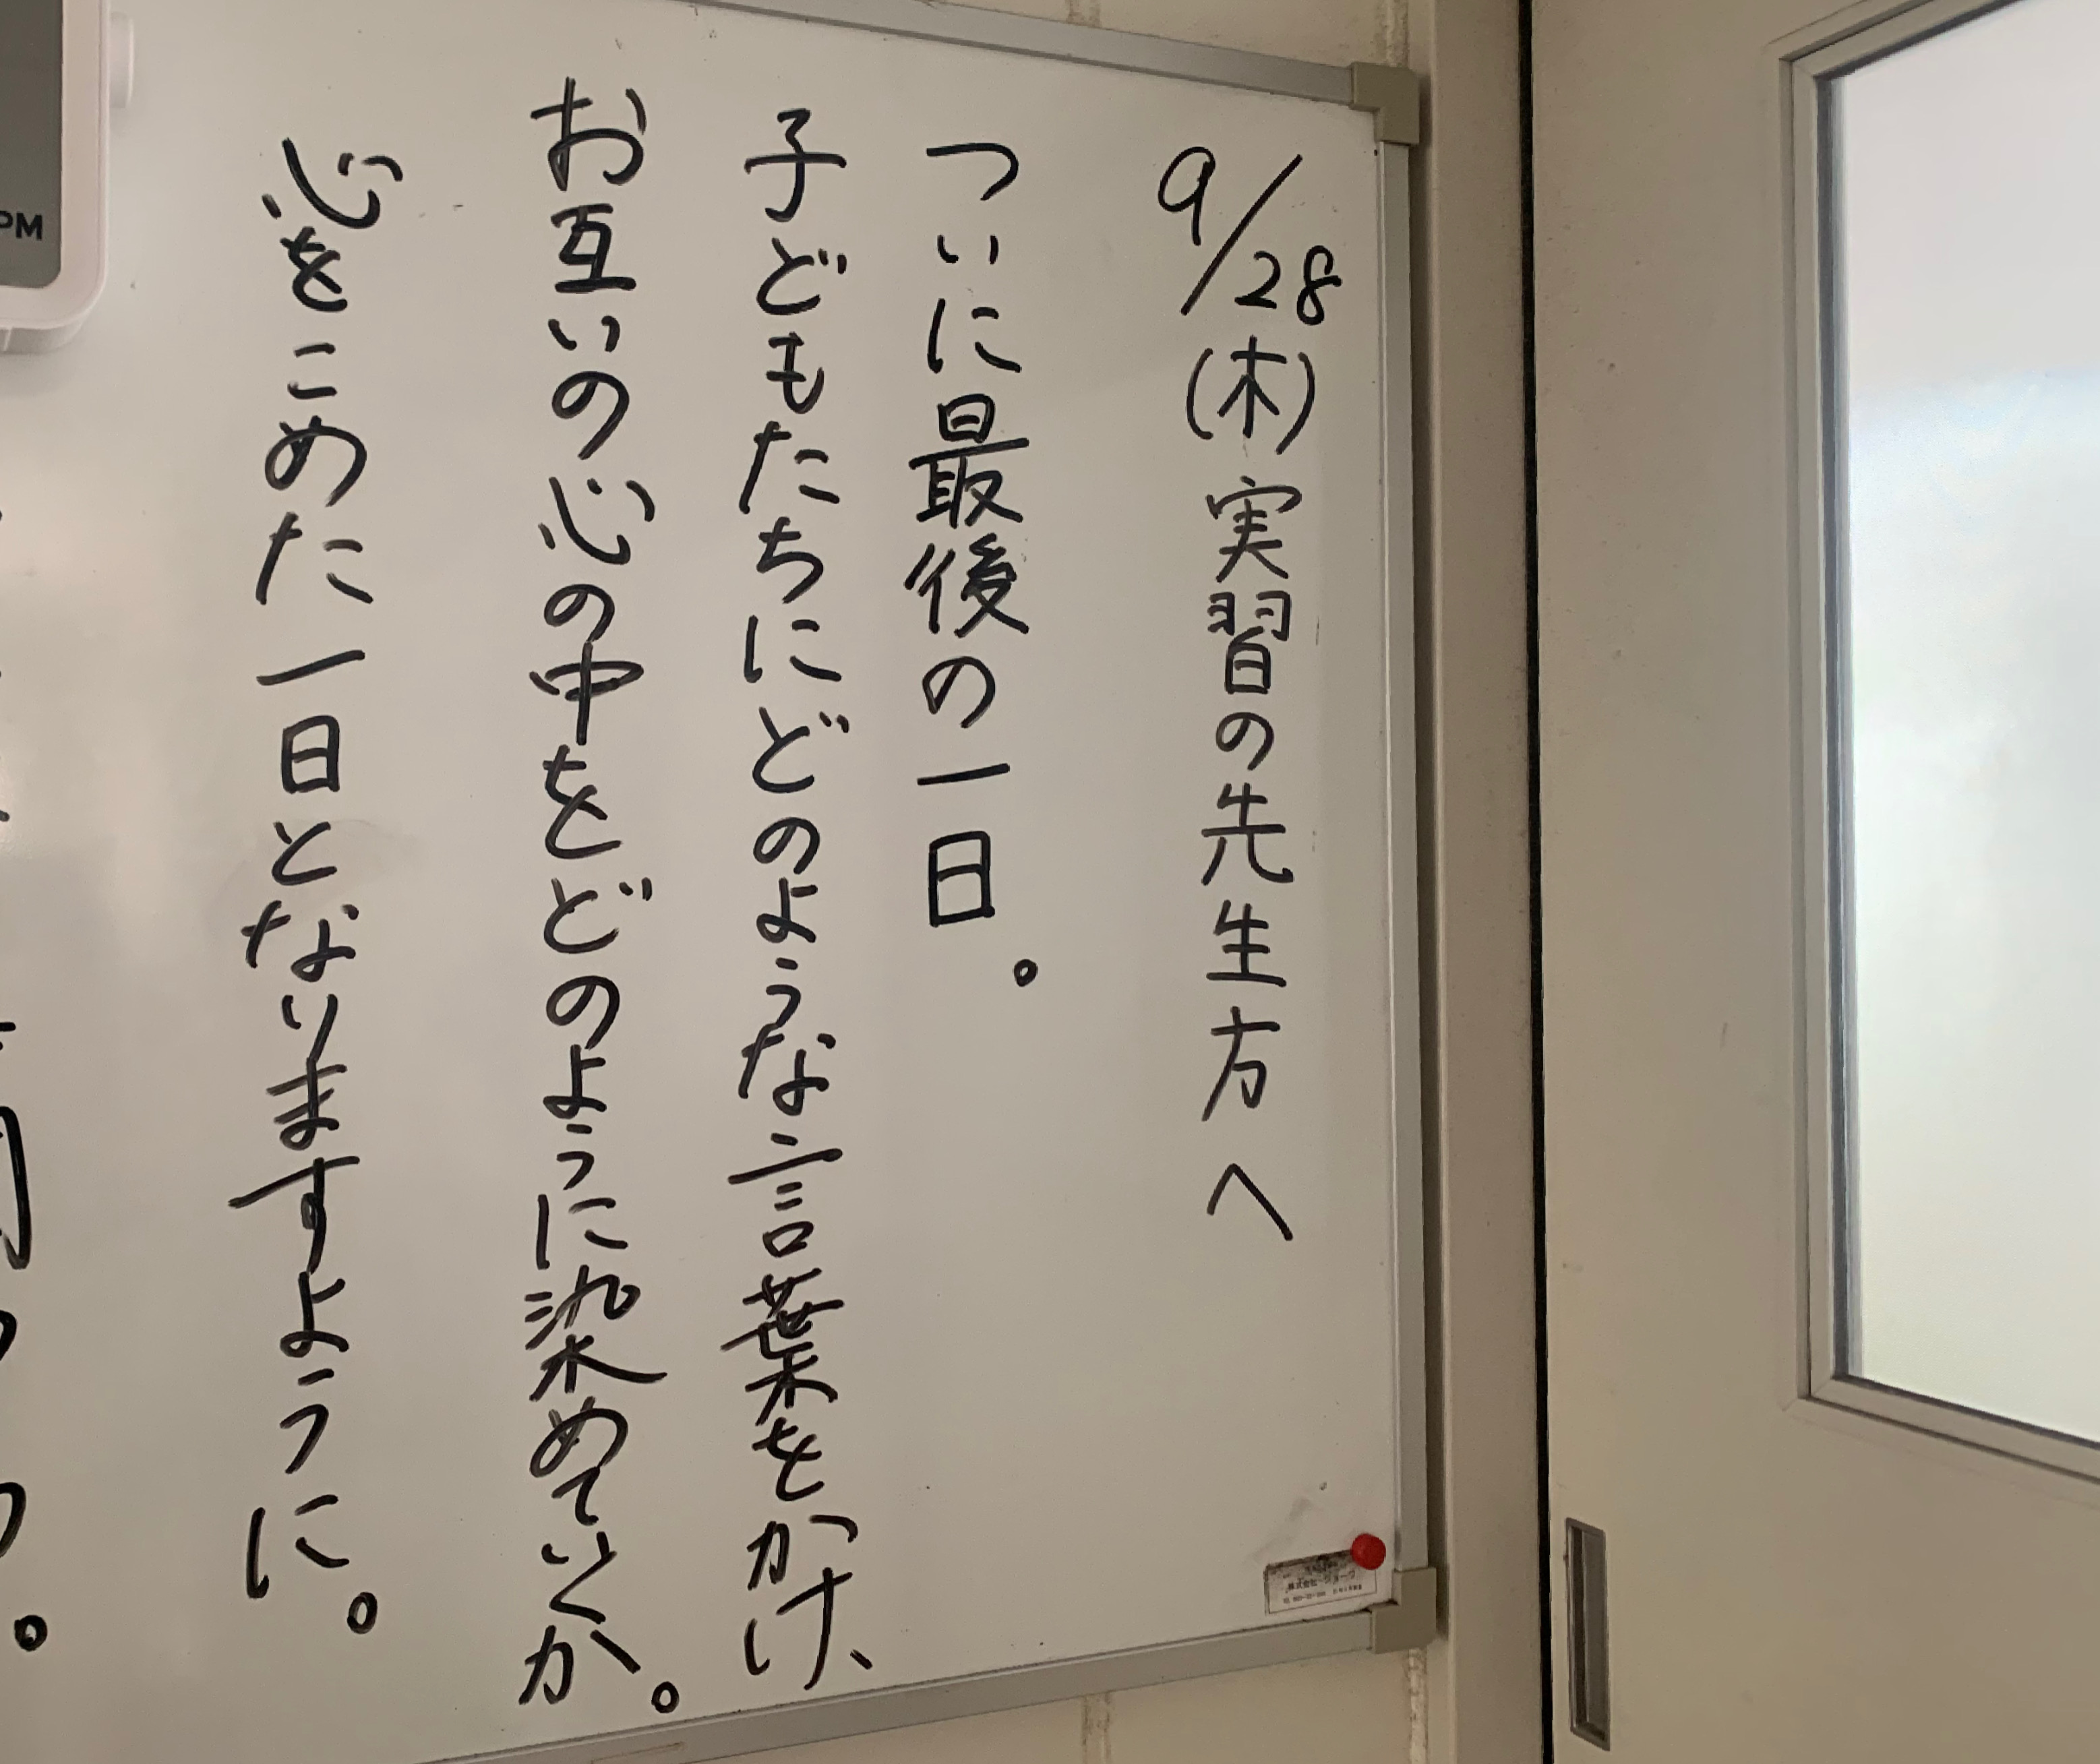 9/28(木)実習の先生方へ
ついに最後の一日。
子どもたちにどのような言葉をかけ、
お互いの心の中をどのように染めていくか。
心をこめた一日となりますように。
PM